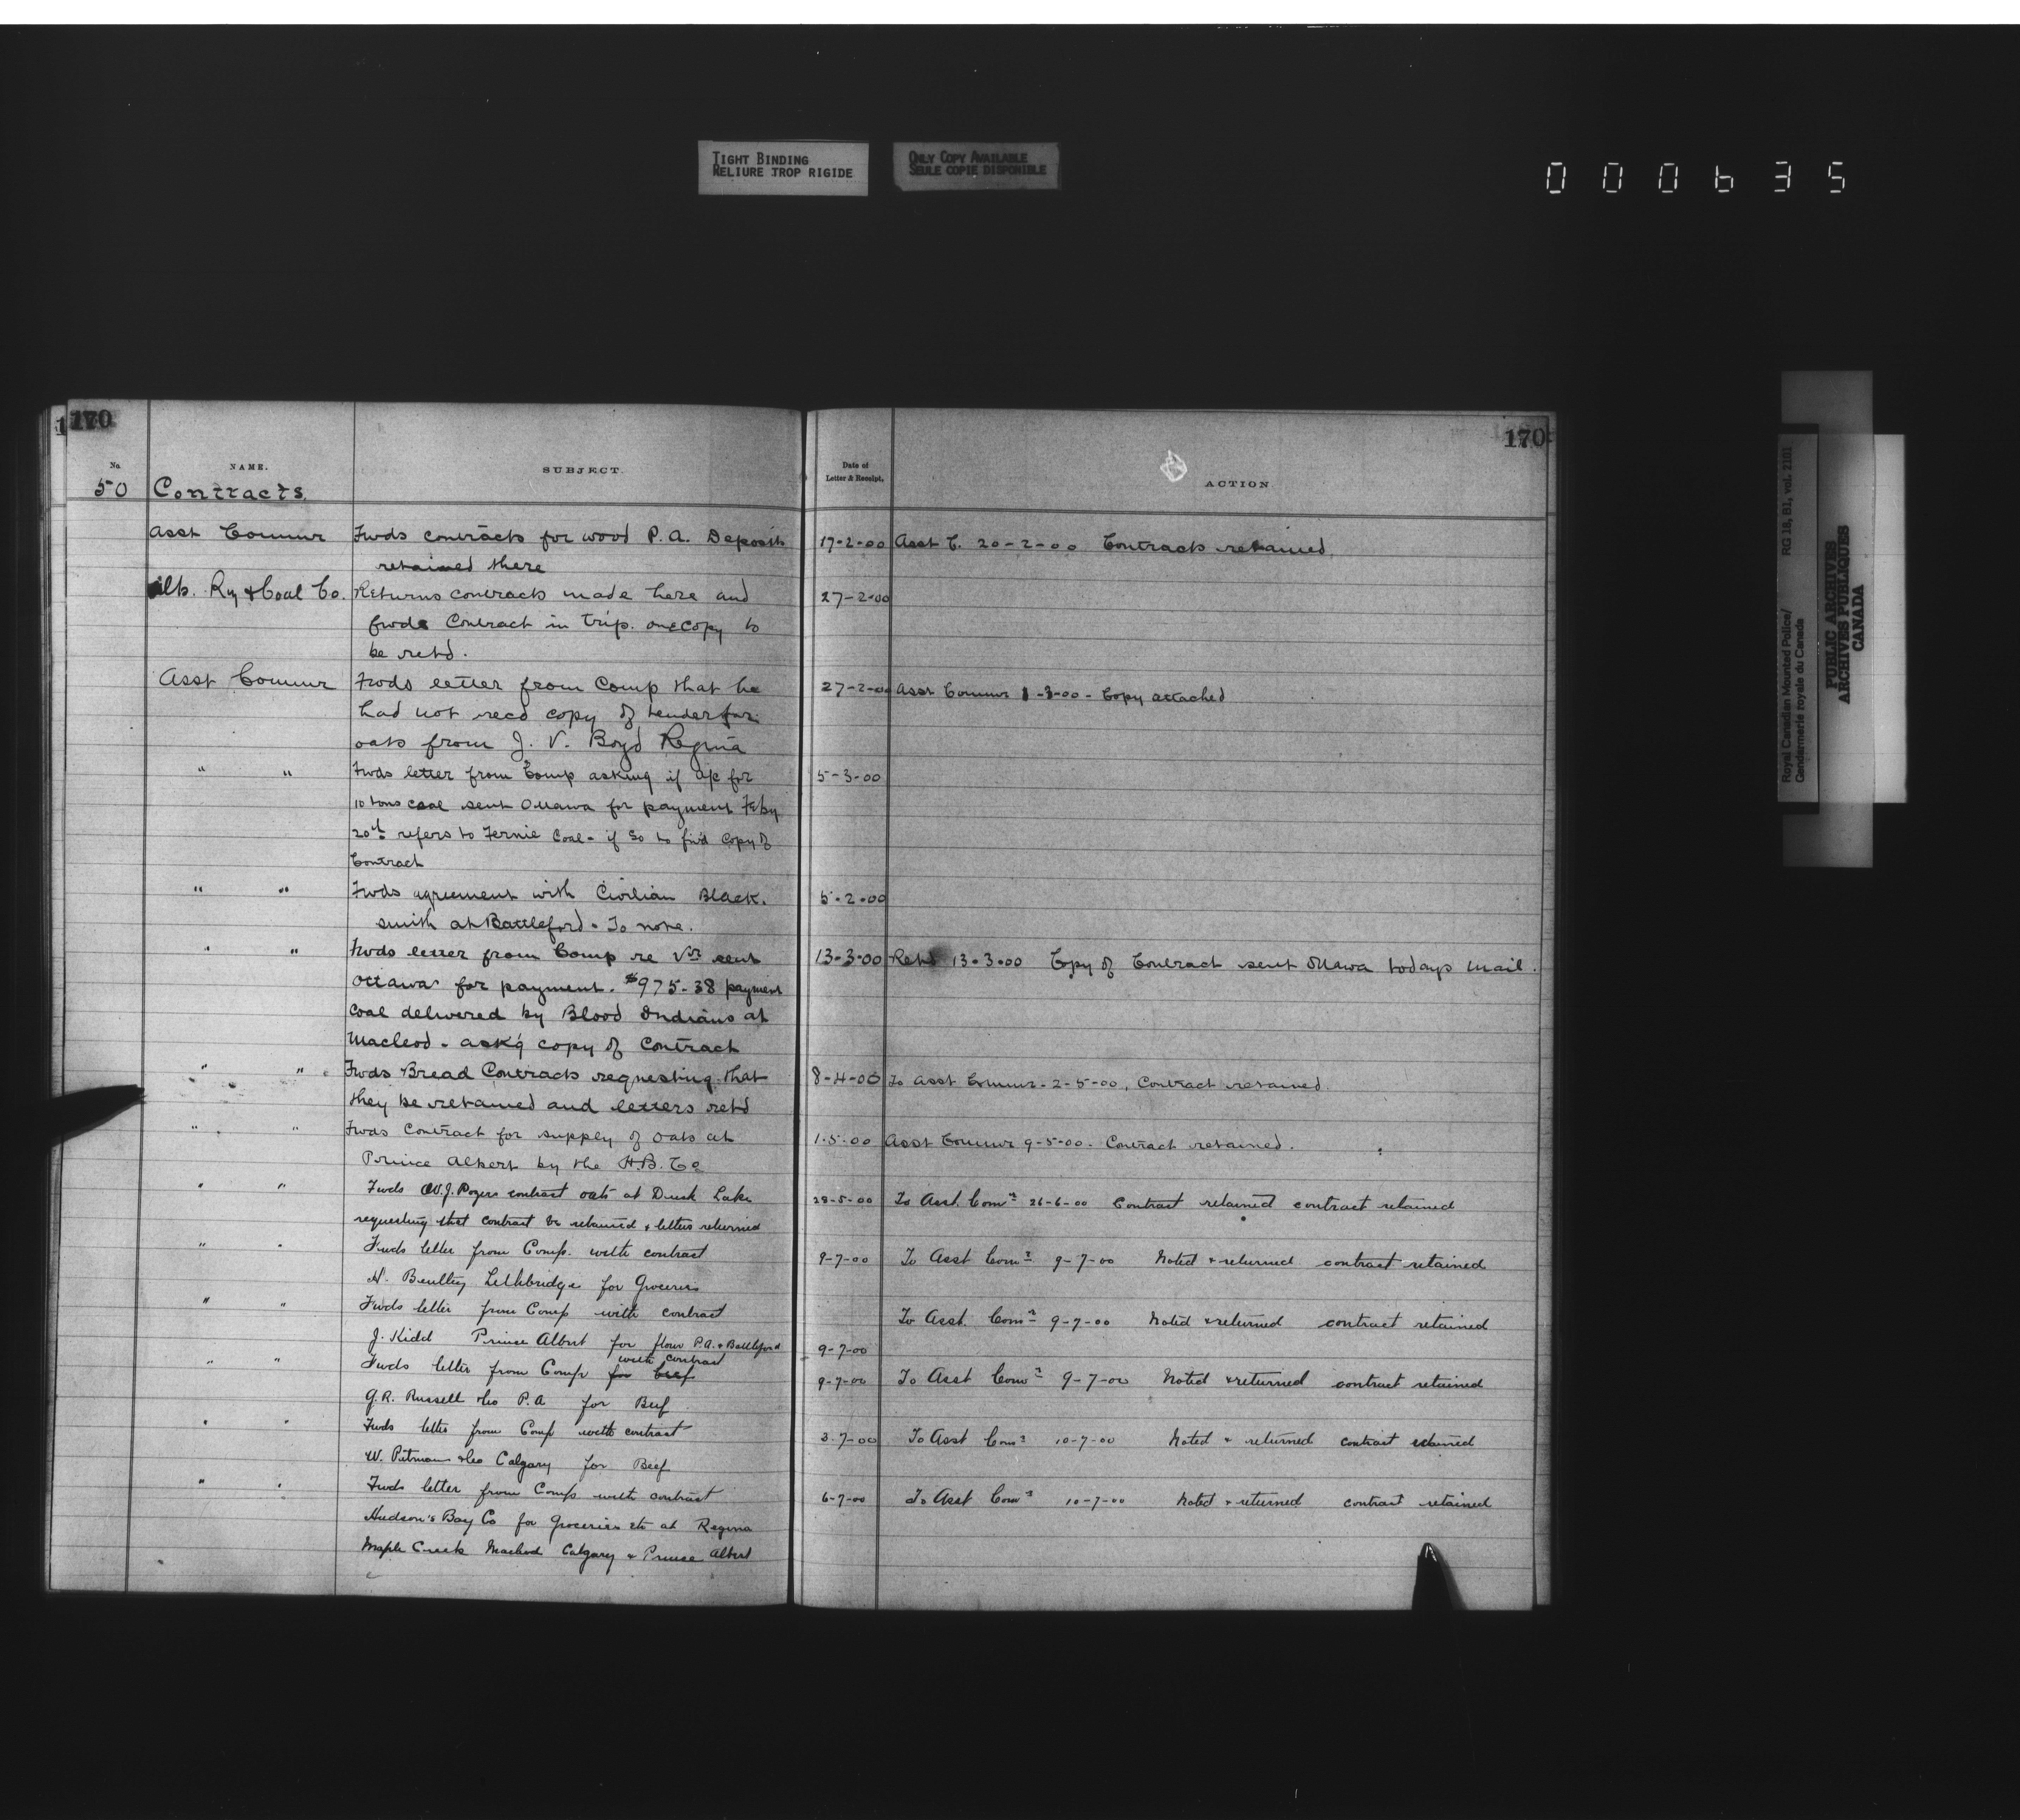 TIGHT BINDING
RELIURE TROP RIGIDE
ONLY COPY AVAILABLE
SEULE COPIE DISPONIBLE
000635
170
170
No. NAME. SUBJECT. Date of Letter & Receipt. ACTION
50 Contracts.
Asst Commr Fwds contracts for wood P.A. Deposits 17-2-00 Asst C. 20-2-00 Contracts retained
retained there
Alb. Ry & Coal Co. Returns contracts made here and 27-2-00
fwds Contract in trip. one copy to
be retd.
Asst Commr Fwds letter from Comp that he 27-2-00 Asst Commr 1-3-00 - Copy attached
had not recd copy of tender for
oats from J. V. Boyd Regina
" " Fwds letter from Comp asking if a/c for 5-3-00
10 tons coal sent Ottawa for payment Feby
20th refers to Fernie Coal - if so to fwd copy of
Contract
" " Fwds agreement with Civilian Black. 5-2-00
smith at Battleford - To note.
" " Fwds letter from Comp re Vr sent 13-3-00 Retd 13-3-00 Copy of Contract sent Ottawa todays mail.
Ottawa for payment. $975-38 payment
coal delivered by Blood Indians at
Macleod - ask'g copy of Contract
" " Fwds Bread Contracts requesting that 8-4-00 To Asst Commr - 2-5-00, Contract retained.
they be retained and letters retd
" " Fwds Contract for supply of oats at 1-5-00 Asst Commr 9-5-00 - Contract retained.
Prince Albert by the H.B. Co
" " Fwds W.J. Rogers contract oats at Duck Lake 28-5-00 To Asst. Comr 26-6-00 Contract retained contract retained
requesting that contract be retained & letters returned
" " Fwds letter from Comp. with contract 9-7-00 To Asst Comr 9-7-00 Noted & returned contract retained
Lethbridge for Groceries
" " Fwds letter from Comp with contract To Asst. Comr 9-7-00 Noted & returned contract retained
J. Kidd Prince Albert for flour P.A. & Battleford 9-7-00
with contract
" " Fwds letter from Comp for beef 9-7-00 To Asst Comr 9-7-00 Noted & returned contract retained
G.R. Russell & Co P.A for Beef
" " Fwds letter from Comp with contract 3-7-00 To Asst Comr 10-7-00 Noted & returned contract retained
W. Pitman & Co Calgary for Beef
" " Fwds letter from Comp with contract 6-7-00 To Asst Comr 10-7-00 Noted & returned contract retained
Hudson's Bay Co for Groceries etc at Regina
Maple Creek Macleod Calgary & Prince Albert
Royal Canadian Mounted Police/ RG 18, B1, vol. 2101
Gendarmerie royale du Canada
PUBLIC ARCHIVES
ARCHIVES PUBLIQUES
CANADA